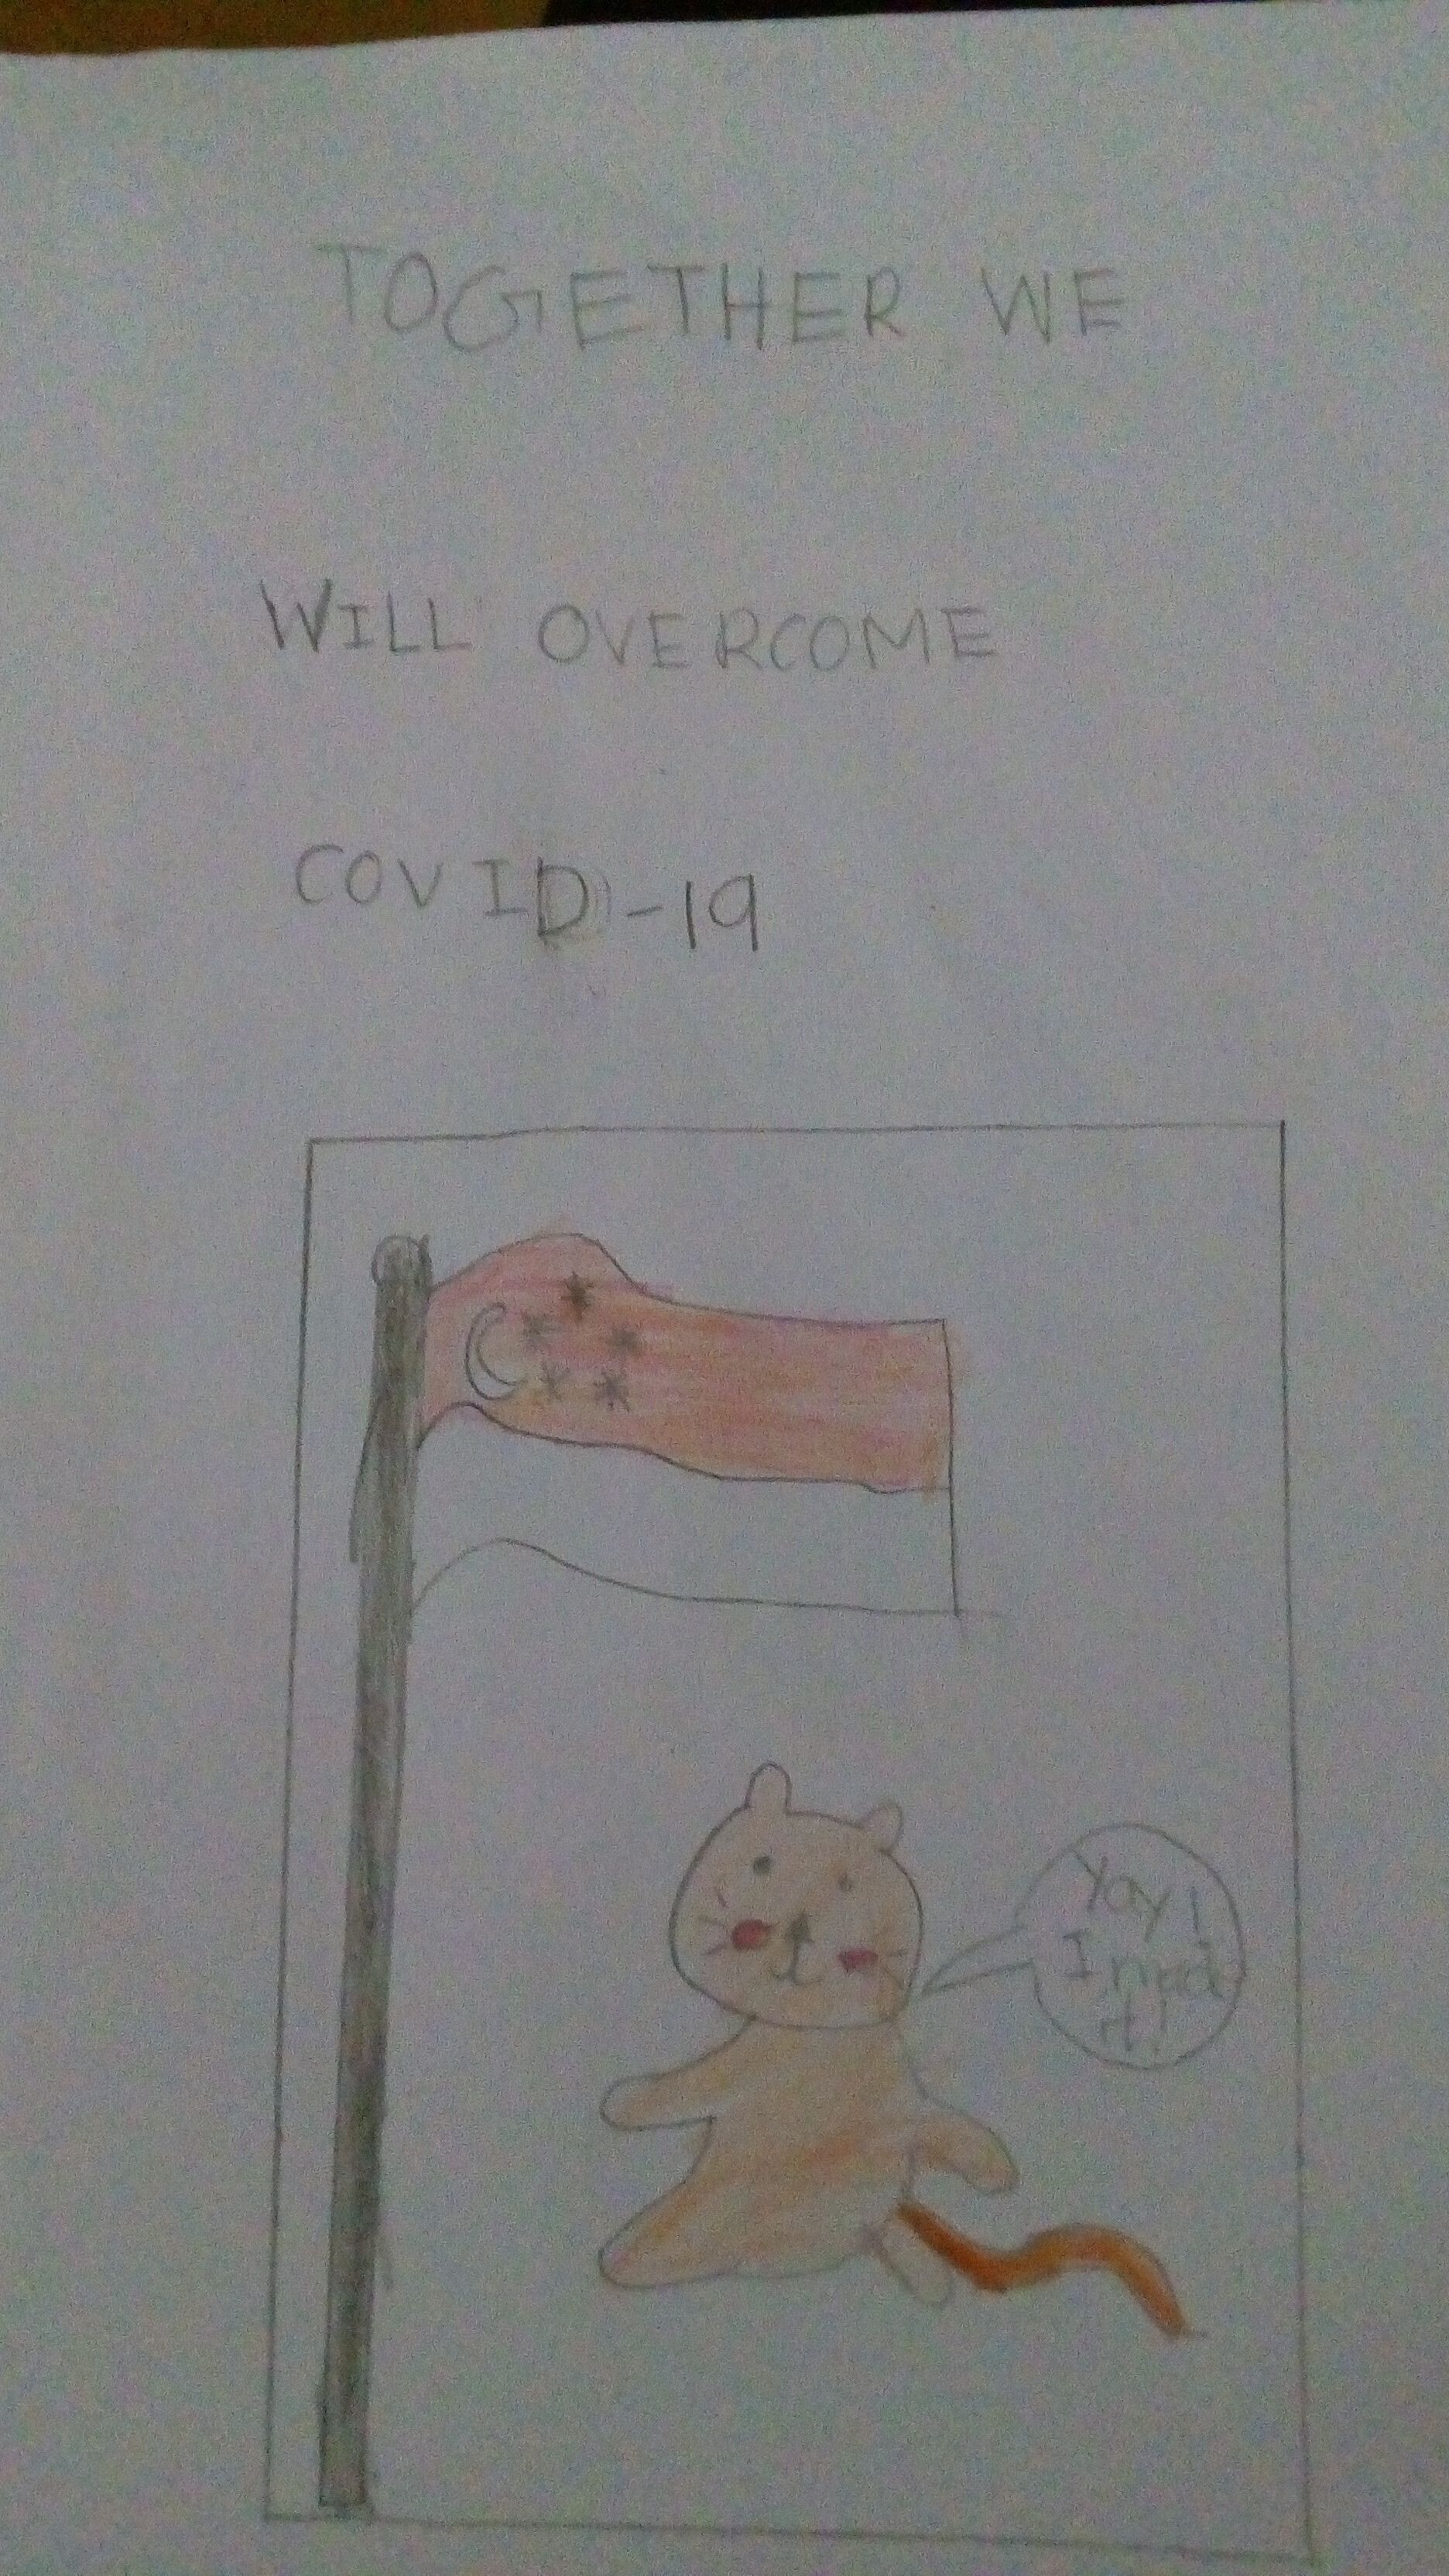 TOGETHER WE
WILL OVERCOME
COVID-19
Yay!
I
it!